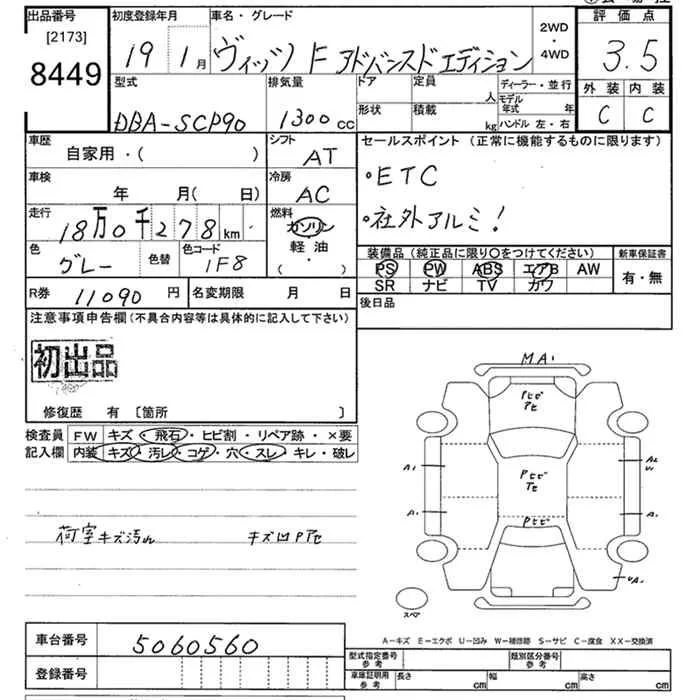 出品番号 初度登録年月 車名・グレード 2WD・4WD 評価点
[2173]
8449 19 1月 ヴィッツ F アドバンスドエディション 3.5
型式 排気量 ドア 定員 人 ディーラー・並行 外装 内装
DBA-SCP90 1300cc 形状 積載 kg モデル年式 年 ハンドル 左・右 C C
車歴 シフト セールスポイント (正常に機能するものに限ります)
自家用・( ) AT
車検 冷房 ・ETC
年 月( 日) AC
走行 燃料 ・社外アルミ!
18万0千278km ガソリン
軽油
( )
色 色替 色コード 装備品(純正品に限り○をつけてください) 新車保証書
グレー 1F8 PS PW ABS エアB AW 有・無
SR ナビ TV カワ
R券 11090円 名変期限 月 日 後日品
注意事項申告欄(不具合内容等は具体的に記入して下さい)
初出品
修復歴 有 [箇所 ]
検査員 FW キズ・飛石・ヒビ割・リペア跡・×要
記入欄 内装 キズ・汚レ・コゲ・穴・スレ・キレ・破レ
荷室キズ汚れ キズ凹Pアセ
MA1
Pヒビ
アセ
Pヒビ
Pヒビ
A1
A1
A1
UA1
スペア
A-キズ E-エクボ U-凹み W-補修跡 S-サビ C-腐食 XX-交換済
車台番号 5060560
登録番号
型式指定番号 参考 類別区分番号 参考
車庫証明用 参考 長さ cm 幅 cm 高さ cm